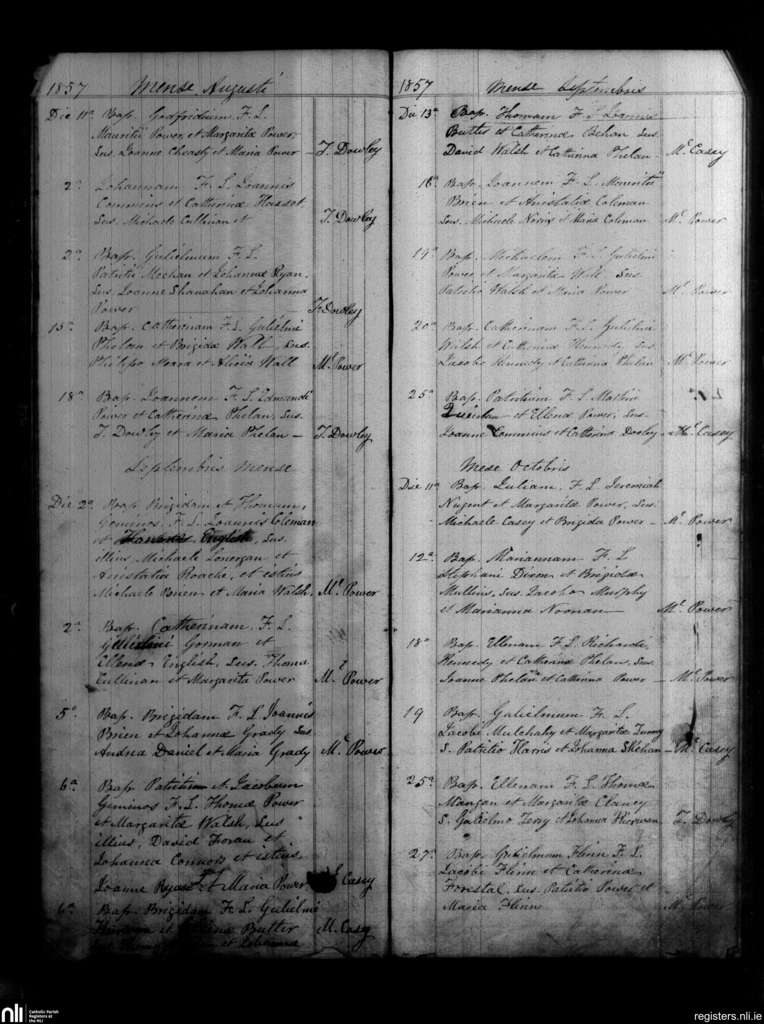 1857 Mense Augusti
Die 11a Bap. Godfridum F. L.
Mauritii Power, et Margarita Power,
Sus. Joanne Cheasty et Maria Power T. Dowley
2a Johannam F. L. Joannis
Commins et Catherinæ
Sus. Michaele Cullinan et T. Dowley
2a Bap. Gulielmum F. L.
Patritii Meehan et Johannæ Ryan.
Sus. Joanne Shanahan et Johanna
Power T. Dowley
15a Bap. Catherinam F. L. Gulielmi
Phelan et Brigidæ Wall, Sus.
Philippo et Alicia Wall Ml. Power
18a Bap. Joannem F. L. Edmundi
Power et Catherinæ Phelan, Sus.
T. Dowley et Maria Phelan — T. Dowley
Septembris Mense
Die 2a Bap. Brigidam et Thomam,
Geminos F. L. Joannis Coleman
et English, Sus.
illius, Michaele Lonergan et
Anastatia Roache, et istius
Michaele Brien et Maria Walsh. Ml. Power
2a Bap. Catherinam F. L.
Gulielmi Gorman et
Ellenæ English, Sus. Thoma
Cullinan et Margarita Power Ml. Power
5a Bap. Brigidam F. L. Joannis
Brien et Johannæ Grady Sus
Andrea Daniel et Maria Grady Ml. Power
6a Bap. Patritium et Jacobum
Geminos F. L. Thomæ Power
et Margaritæ Walsh, Sus
illius, David Foran et
Johanna Connors et istius
Joanne Ryan et Maria Power Casey
6a Bap. Brigidam F. L. Gulielmi
et Butler M. Casey
et Johanna
1857 Mense Septembris
Die 13a Bap. Thomam F. L. Joannis
Butler et Catherinæ Behan Sus.
David Walsh et Catherina Phelan Ml. Casey
18a Bap. Joannem F. L. Mauritii
Brien et Anastatiæ Coleman
Sus. Michaele et Maria Coleman Ml. Power
19a Bap. Michaelem F. L. Gulielmi
Power et Margaritæ Sus
Patritio Walsh et Maria Power Ml. Power
20a Bap. Catherinam F. L. Gulielmi
Walsh et Catherinæ Kennedy, Sus.
Jacobo Kennedy et Catherina Phelan Ml. Power
25a Bap. Patritium F. L. Mathiæ
Quinlan et Ellenæ Power, Sus.
Joanne Commins et Catherina Dooley — Ml. Casey
Mese Octobris
Die 11a Bap. Juliam F. L. Jeremiah
Nugent et Margaritæ Power, Sus.
Michaele Casey et Brigida Power — Ml. Power
12a Bap. Mariannam F. L.
Stephani Dixon et Brigidæ
Mullins, Sus. Jacobo Murphy
et Marianna Noonan Ml. Power
18a Bap. Ellenam F. L. Richardi
Kennedy et Catherinæ Phelan, Sus.
Joanne Phelan et Catherina Power — Ml. Power
19 Bap. Gulielmum F. L.
Jacobi Mulchahy et Margaritæ
S. Patritio Harris et Johanna Skehan — Ml. Casey
25a Bap. Ellenam F. L. Thomæ
Mangan et Margaritæ Clancy
S. Gulielmo Terry et Johanna T. Dowley
27a Bap. Gulielmum Flinn F. L.
Jacobi Flinn et Catherinæ
Forestal, Sus. Patritio Power, et
Maria Flinn Ml. Power
nli Catholic Parish
Registers at
the NLI
registers.nli.ie